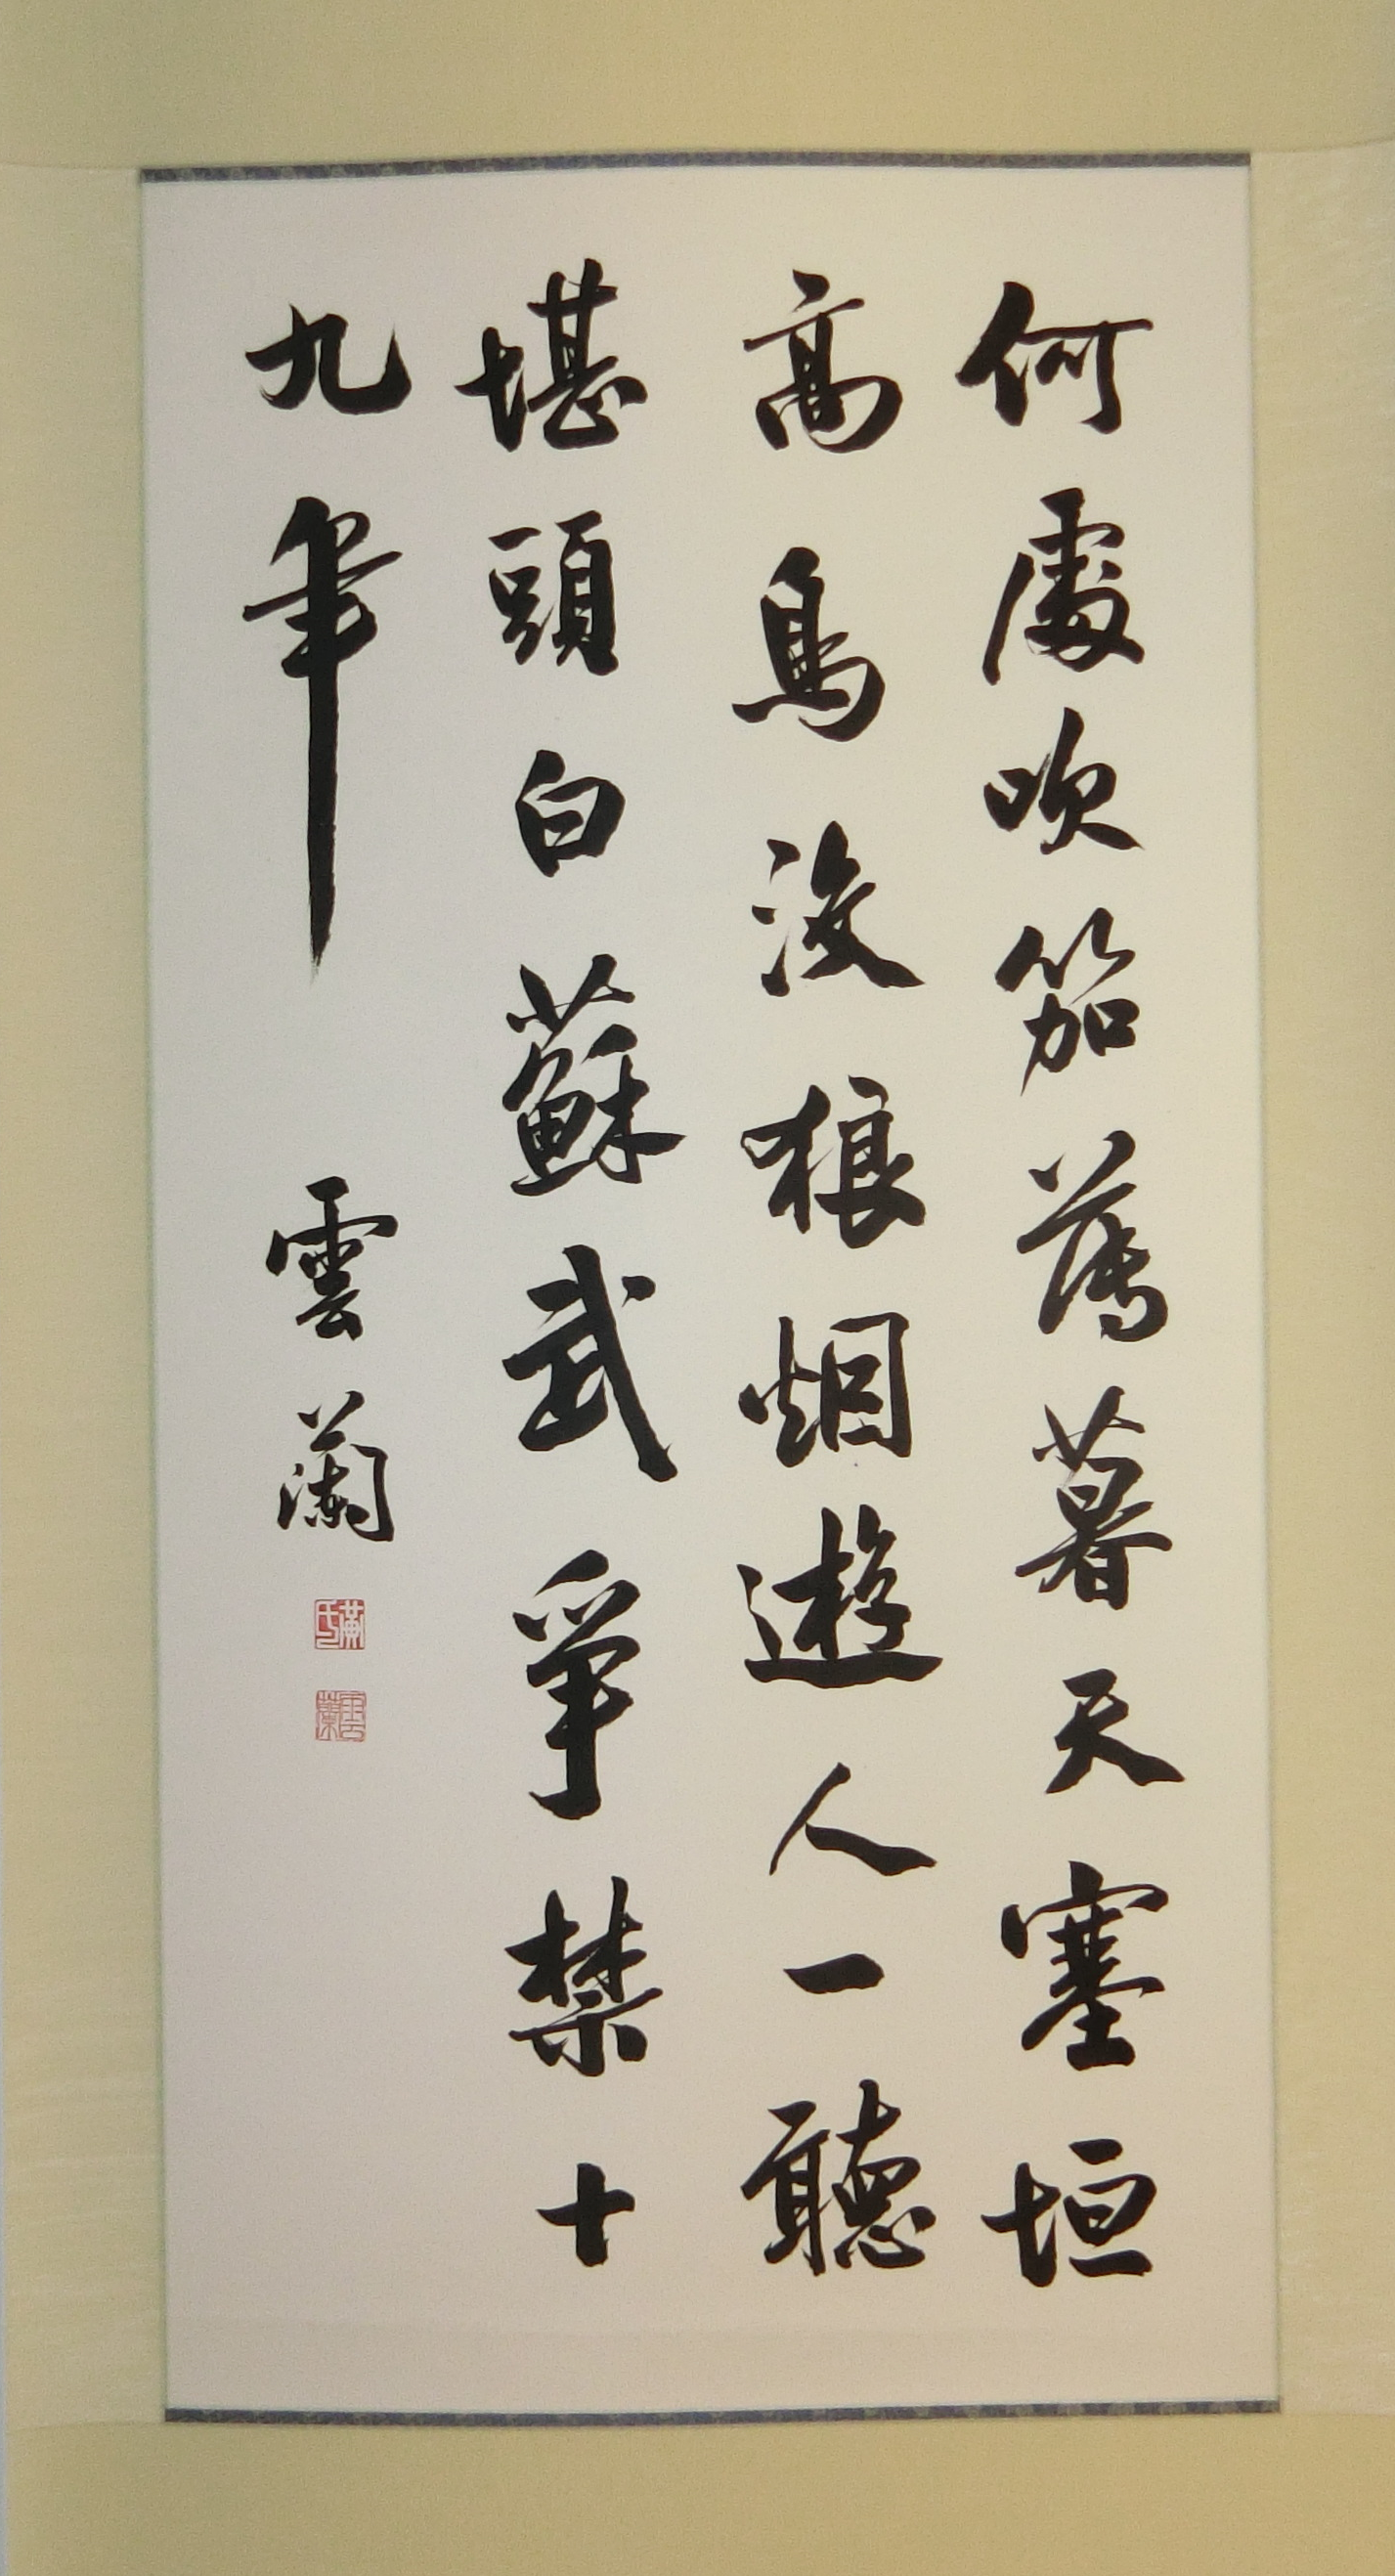 何處吹笳薄暮天塞垣
高鳥没狼烟遊人一聽
堪頭白蘇武爭禁十
九年
雲蘭
雲蘭